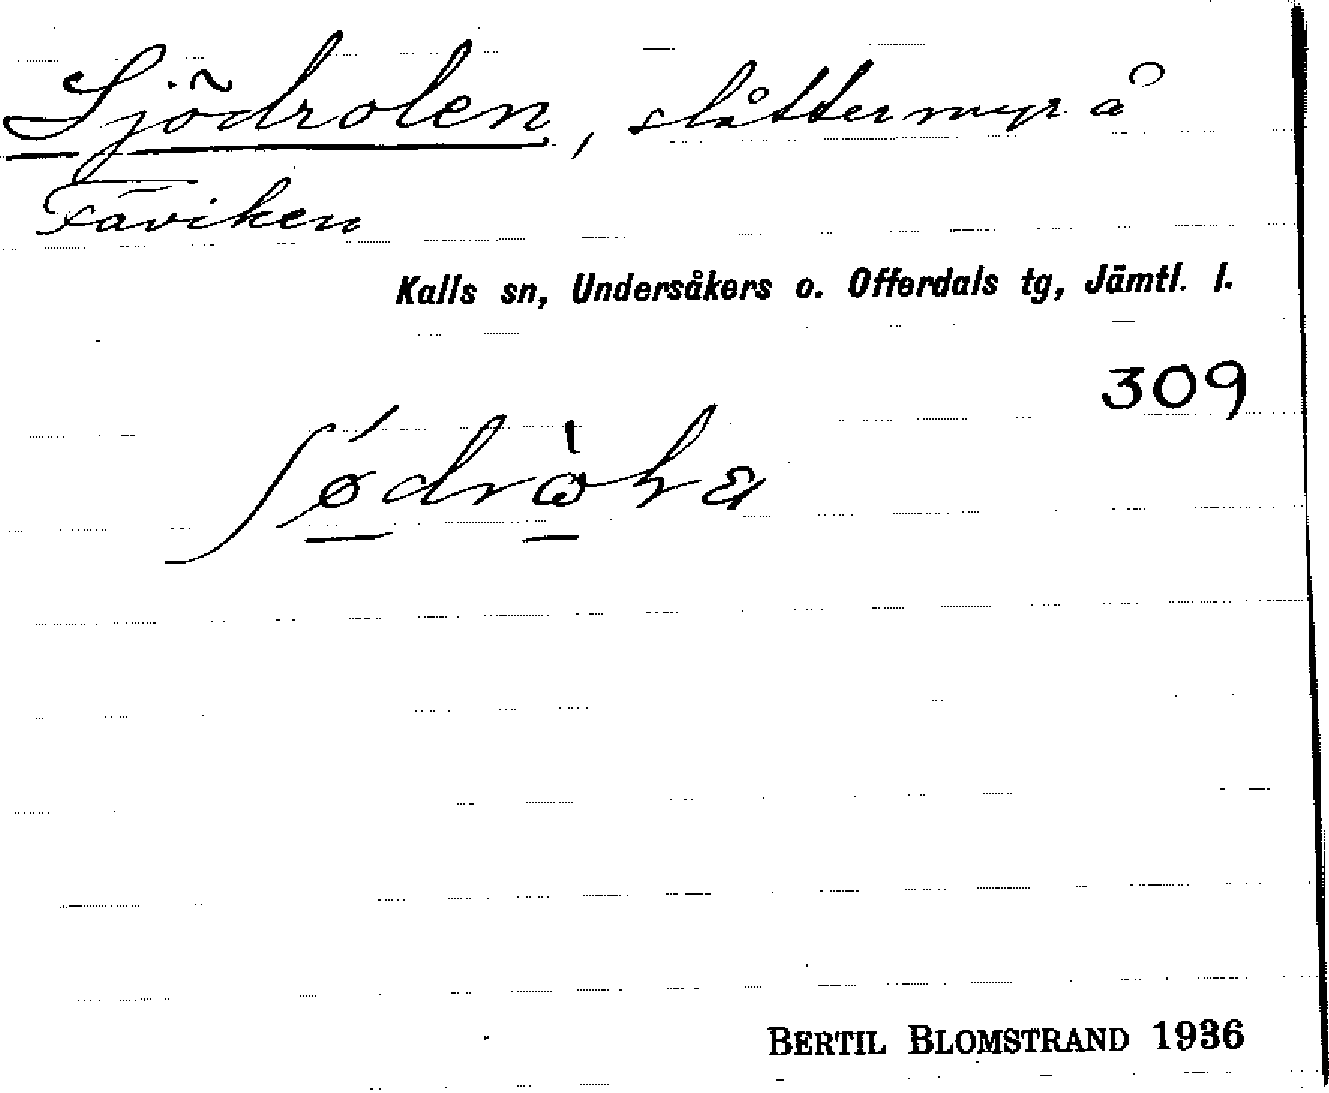 Sjödrolen, slåttermyr å
Fäviken
Kalls sn, Undersåkers o. Offerdals tg, Jämtl. l.
309
BERTIL BLOMSTRAND 1936